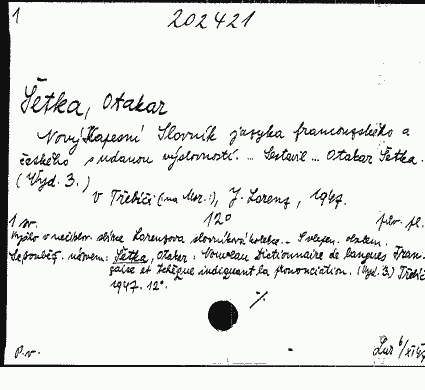 1
202421
Šetka, Otakar
Nový Kapesní Slovník jazyka francouzského a
českého s udanou výslovností. ... Sestavil ... Otakar Šetka.
(Vyd. 3.)
v Třebíči (na Mor.), J. Lorenz, 1947.
1 sv. 12° plv. pl.
Vyšlo v Lorenzova slovníková
názvem: Šetka, Otakar: Nouveau Dictionnaire de langues Fran-
çaise et Tchèque indiquant la prononciation. (Vyd. 3.) Třebíč
1947. 12°.
%
P. v.